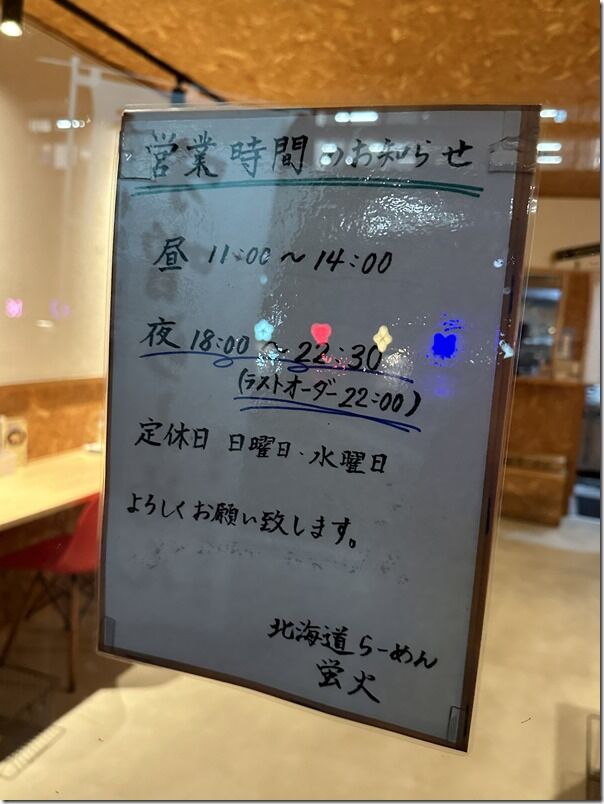 営業時間のお知らせ
昼 11:00～14:00
夜 18:00～22:30
(ラストオーダー22:00)
定休日 日曜日・水曜日
よろしくお願い致します。
北海道らーめん
蛍火